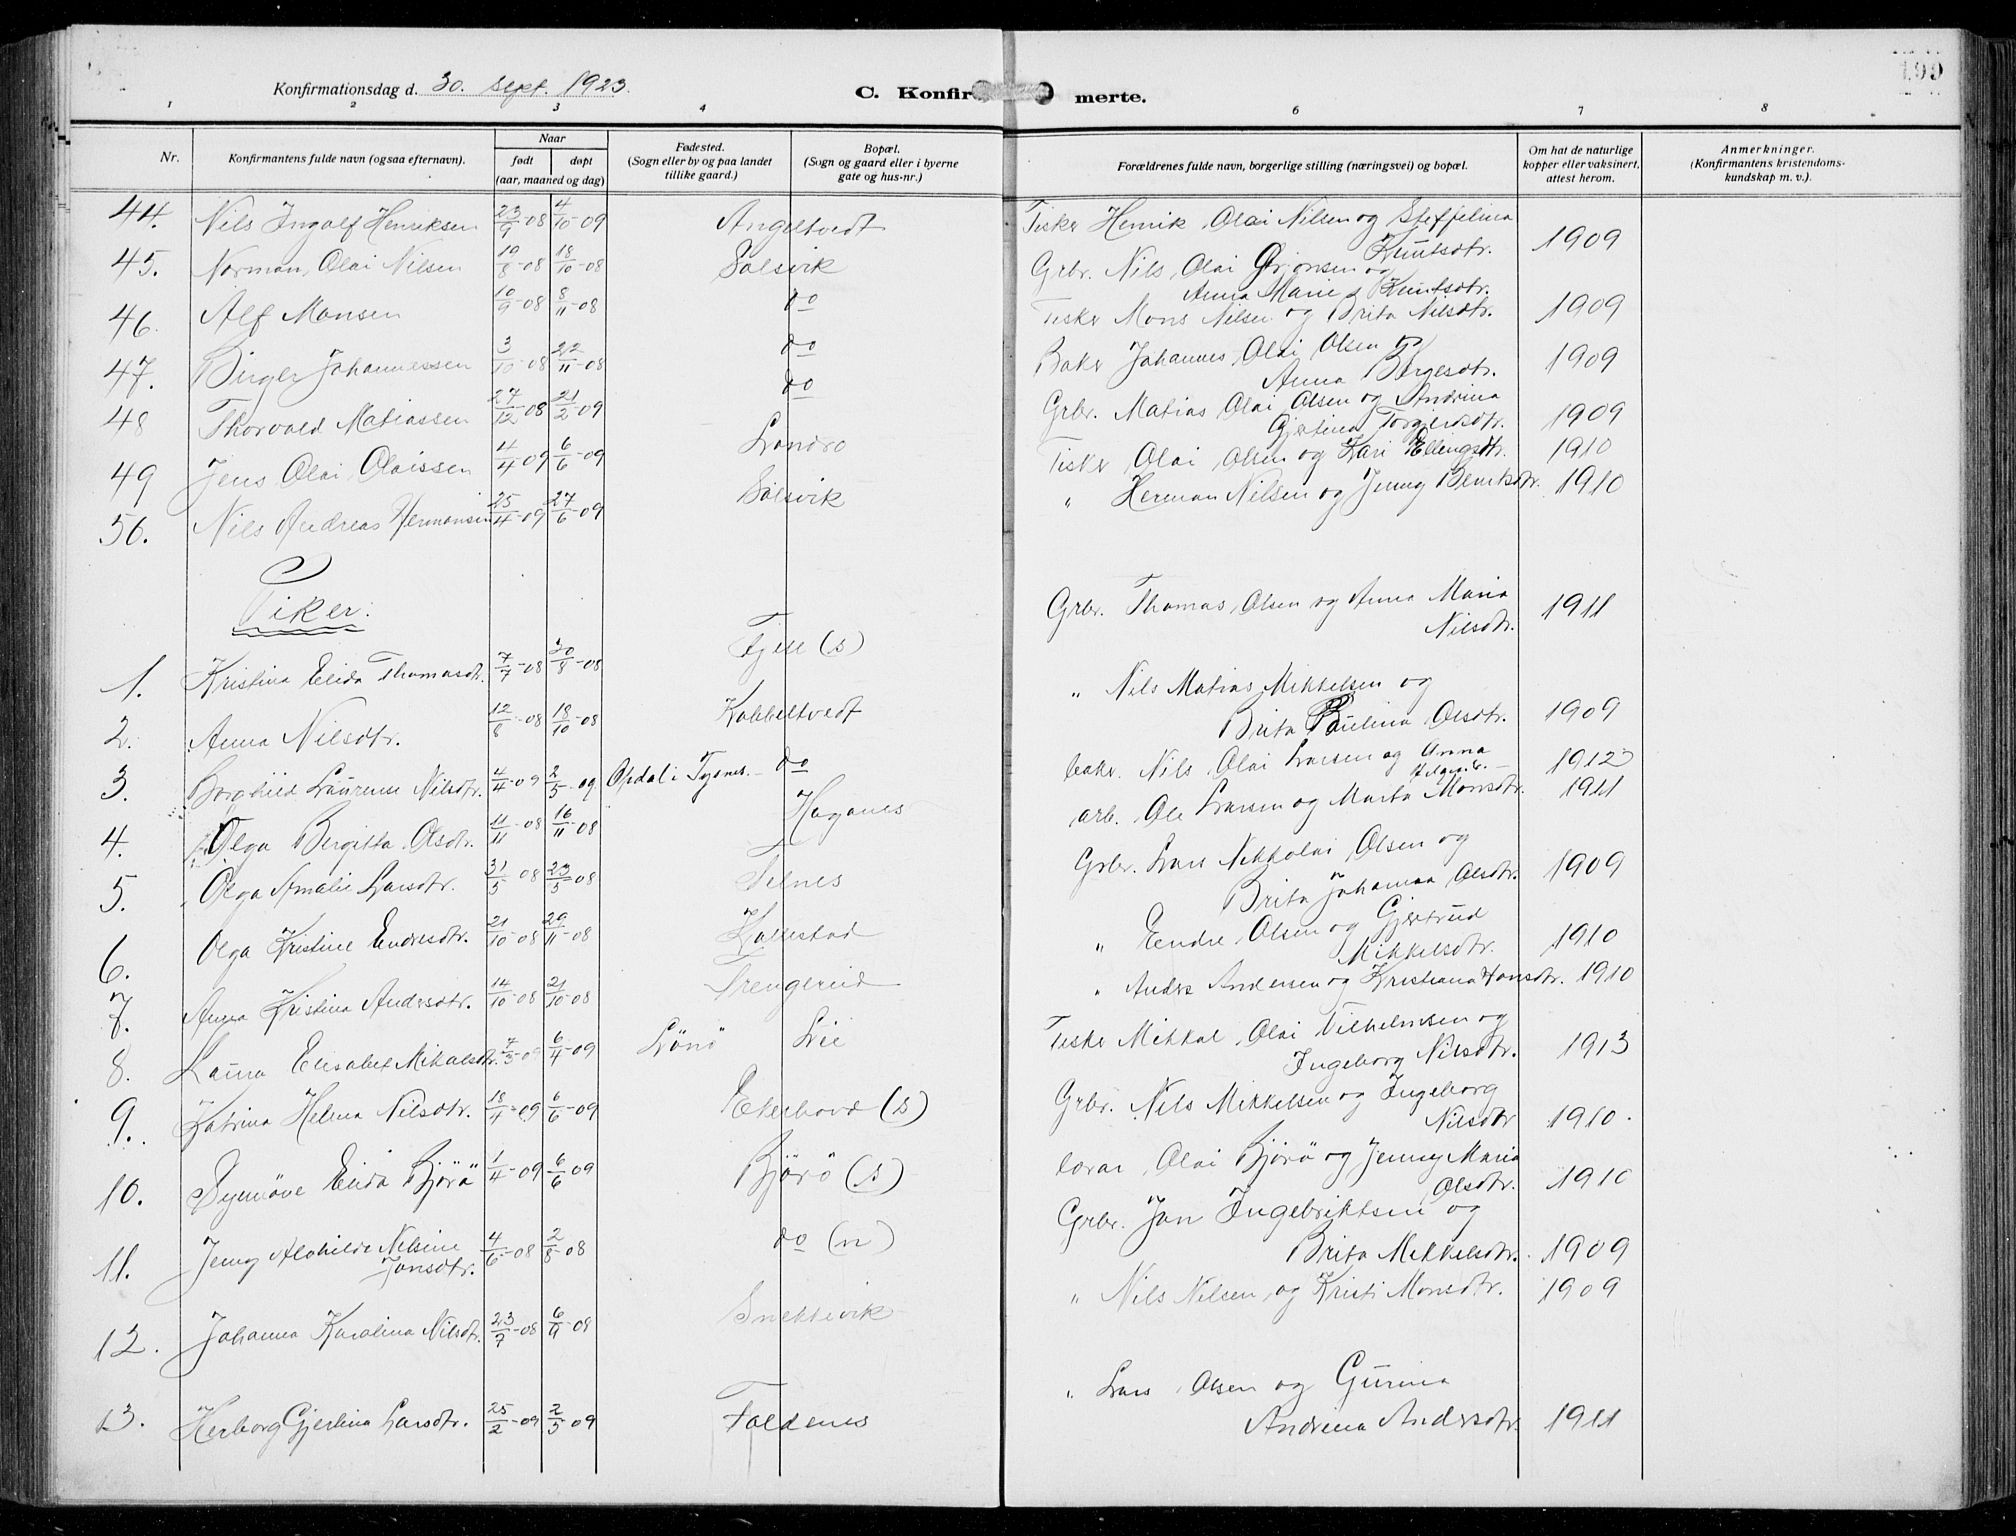 199
Konfirmationsdag d. 30. sept. 1923.
C. Konfirmerte.
1 2 3 4 6 7 8
Nr. | Konfirmantens fulde navn (ogsaa efternavn). | Naar født døpt (aar, maaned og dag) | Fødested. (Sogn eller by og paa landet tillike gaard.) | Bopæl. (Sogn og gaard eller i byerne gate og hus-nr.) | Forældrenes fulde navn, borgerlige stilling (næringsvei) og bopæl. | Om hat de naturlige kopper eller vaksinert, attest herom. | Anmerkninger. (Konfirmantens kristendomskundskap m. v.).
44. Nils Ingolf Henriksen 23/9-08 4/10-09 Angeltvedt Fisker Henrik Olai Nilsen og Steffelina Knutsdtr. 1909
45. Norman Olai Nilsen 19/8-08 18/10-08 Solsvik Grbr. Nils Olai Ørjansen og Anna Marie Knutsdtr.
46. Alf Monsen 10/9-08 8/11-08 do Fisker Mons Nilsen og Brita Nilsdtr. 1909
47. Birger Johannessen 3/10-08 22/11-08 do Baker Johannes Olai Olsen og Anna Børgesdtr. 1909
48 Thorvald Matiassen 27/12-08 21/2-09 do Grbr. Matias Olai Olsen og Andrina Gjertina Torgersdtr. 1909
49 Jens Olai Olaissen 4/4-09 6/6-09 Landro Fisker Olai Olsen og Kari Ellingsdtr. 1910
50. Nils Andreas Hermansen 25/4-09 27/6-09 Solsvik " Herman Nilsen og Jenny Bentsdtr. 1910
Piker:
1. Kristina Elida Thomasdtr. 7/7-08 30/8-08 Fjell (s) Grbr. Thomas Olsen og Anna Maria Nilsdtr. 1911
2. Anna Nilsdtr. 12/8-08 18/10-08 Kobbeltvedt " Nils Matias Mikkelsen og Brita Paulina Olsdtr. 1909
3. Borghild Laurense Nilsdtr. 4/4-09 2/5-09 Opdal i Tysnes. do baker. Nils Olai Larsen og Anna Helgesdtr. 1912
4. Olga Bergitta Olsdtr. 11/11-08 16/11-08 Haganes arb. Ole Larsen og Marta Monsdtr. 1911
5. Olga Amalie Larsdtr. 31/5 08 23/5-08 Telnes Grbr. Lars Nikkolai Olsen og Brita Johanna Olsdtr. 1909
6. Olga Kristine Endresdtr. 21/10-08 29/11-08 Kallestad " Endre Olsen og Gjertrud Mikkelsdtr. 1910
7. Anna Kristina Andersdtr. 14/10-08 21/10-08 Trengereid " Anders Andersen og Kristiana Hansdtr. 1910
8. Laura Elisabet Mikalsdtr. 7/3-09 6/4-09 Lönö Lie Fisker Mikkal Olai Vilhelmsen og Ingeborg Nilsdtr. 1913
9. Katrina Helena Nilsdtr. 18/4-09 6/6-09 Ekerhovd (s) Grbr. Nils Mikkelsen og Ingeborg Nilsdtr 1910.
10. Synnöve Elida Björö 1/4-09 6/6 09 Björö (s) lærar Olai Björö og Jenny Maria Olsdtr. 1910
11. Jenny Alvhilde Nilsine Jonsdtr. 4/6-08 2/8-08 do (n) Grbr. Jon Ingebriktsen og Brita Mikkelsdtr. 1909
12. Johanna Karolina Nilsdtr. 23/7-08 6/9-08 Snekkevik " Nils Nilsen og Kristi Monsdtr. 1909
13. Herborg Gjertina Larsdtr. 25/2-09 2/5 09 Foldenes " Lars Olsen og Gurina Andrina Andersdtr. 1911